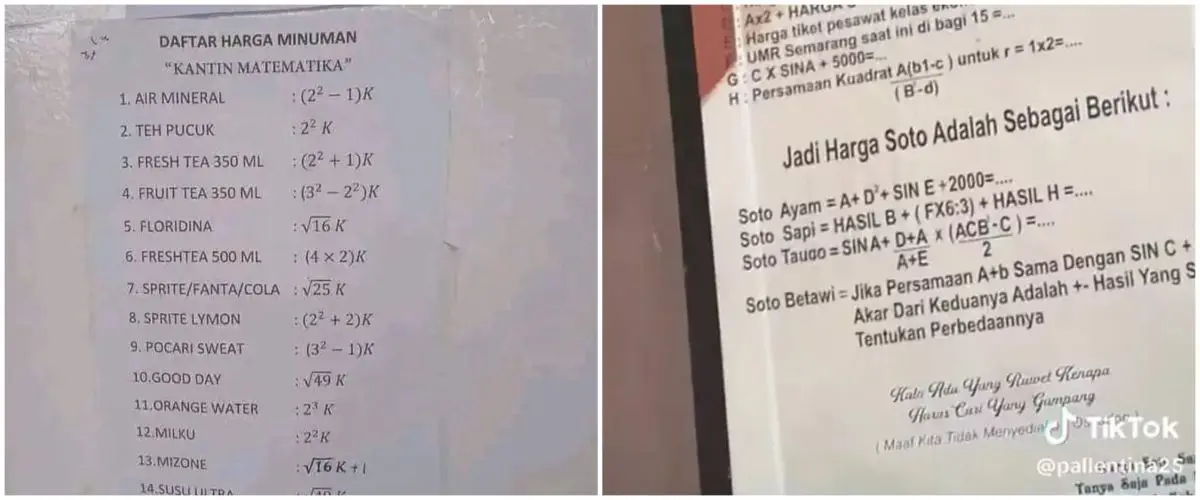 DAFTAR HARGA MINUMAN
"KANTIN MATEMATIKA"
1. AIR MINERAL : (2² − 1)K
2. TEH PUCUK : 2² K
3. FRESH TEA 350 ML : (2² + 1)K
4. FRUIT TEA 350 ML : (3² − 2²)K
5. FLORIDINA : √16 K
6. FRESHTEA 500 ML : (4 × 2)K
7. SPRITE/FANTA/COLA : √25 K
8. SPRITE LYMON : (2² + 2)K
9. POCARI SWEAT : (3² − 1)K
10.GOOD DAY : √49 K
11.ORANGE WATER : 2³ K
12.MILKU : 2²K
13.MIZONE : √16 K + 1
14.SUSU ULTRA
: Ax2 + HARGA
: Harga tiket pesawat kelas
: UMR Semarang saat ini di bagi 15 =...
G : C X SINA + 5000=...
H : Persamaan Kuadrat A(b1-c) untuk r = 1x2=....
(B-d)
Jadi Harga Soto Adalah Sebagai Berikut :
Soto Ayam = A+ D²+ SIN E +2000=....
Soto Sapi = HASIL B + ( FX6:3) + HASIL H =....
Soto Tauco = SINA+ D+A x (ACB-C ) =....
A+E 2
Soto Betawi = Jika Persamaan A+b Sama Dengan SIN C +
Akar Dari Keduanya Adalah +- Hasil Yang S
Tentukan Perbedaannya
Kalo Ada Yang Ruwet Kenapa
Harus Cari Yang Gampang
( Maaf Kita Tidak Menyedia
TikTok
@pallentina25
Tanya Saja Pada